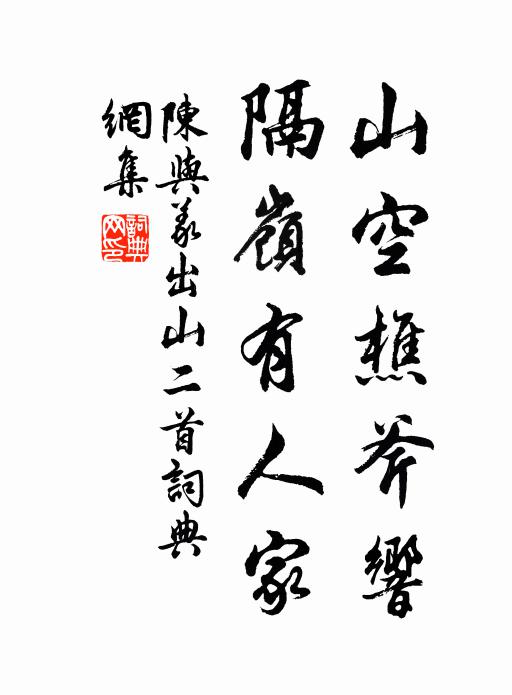 山空樵斧響
隔嶺有人家
陳與義出山二首詞典
網集
詞典网印